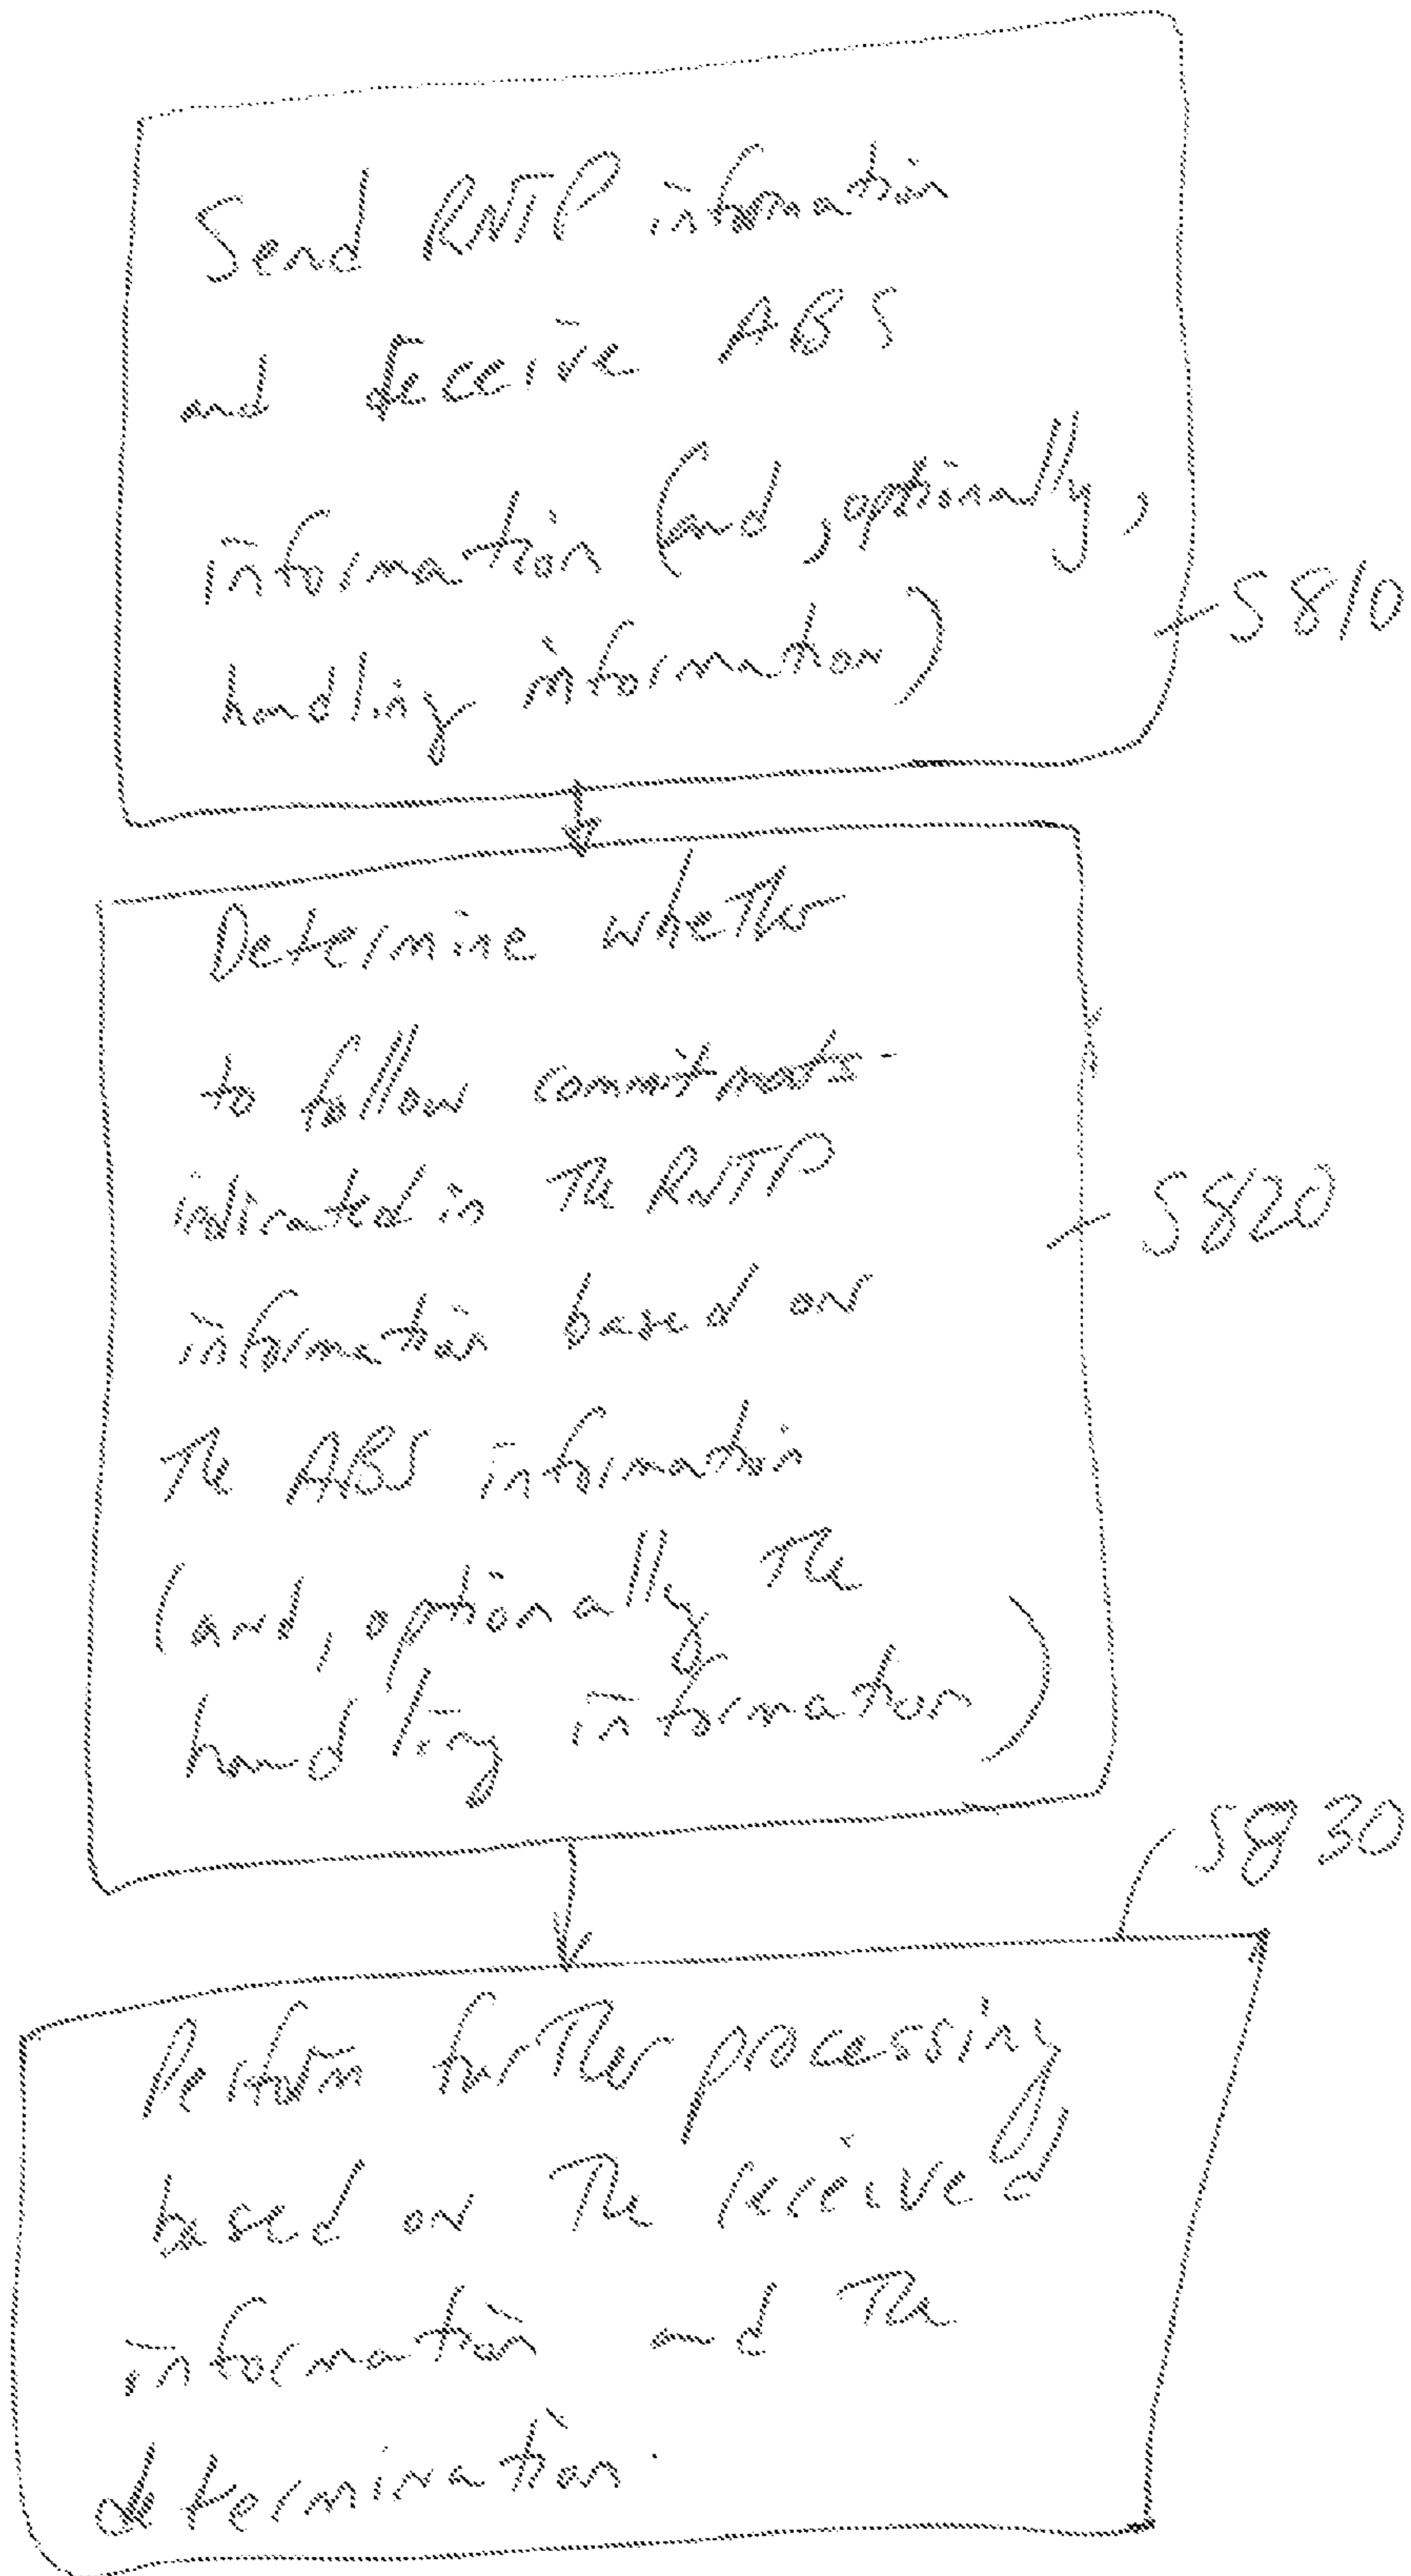 Send RNTP information
and receive ABS
information (and, optionally,
handling information)
S810
Determine whether
to follow commitments
indicated in The RNTP
information based on
The ABS information
(and, optionally The
handling information)
S820
S830
Perform further processing
based on The received
information and The
determination.